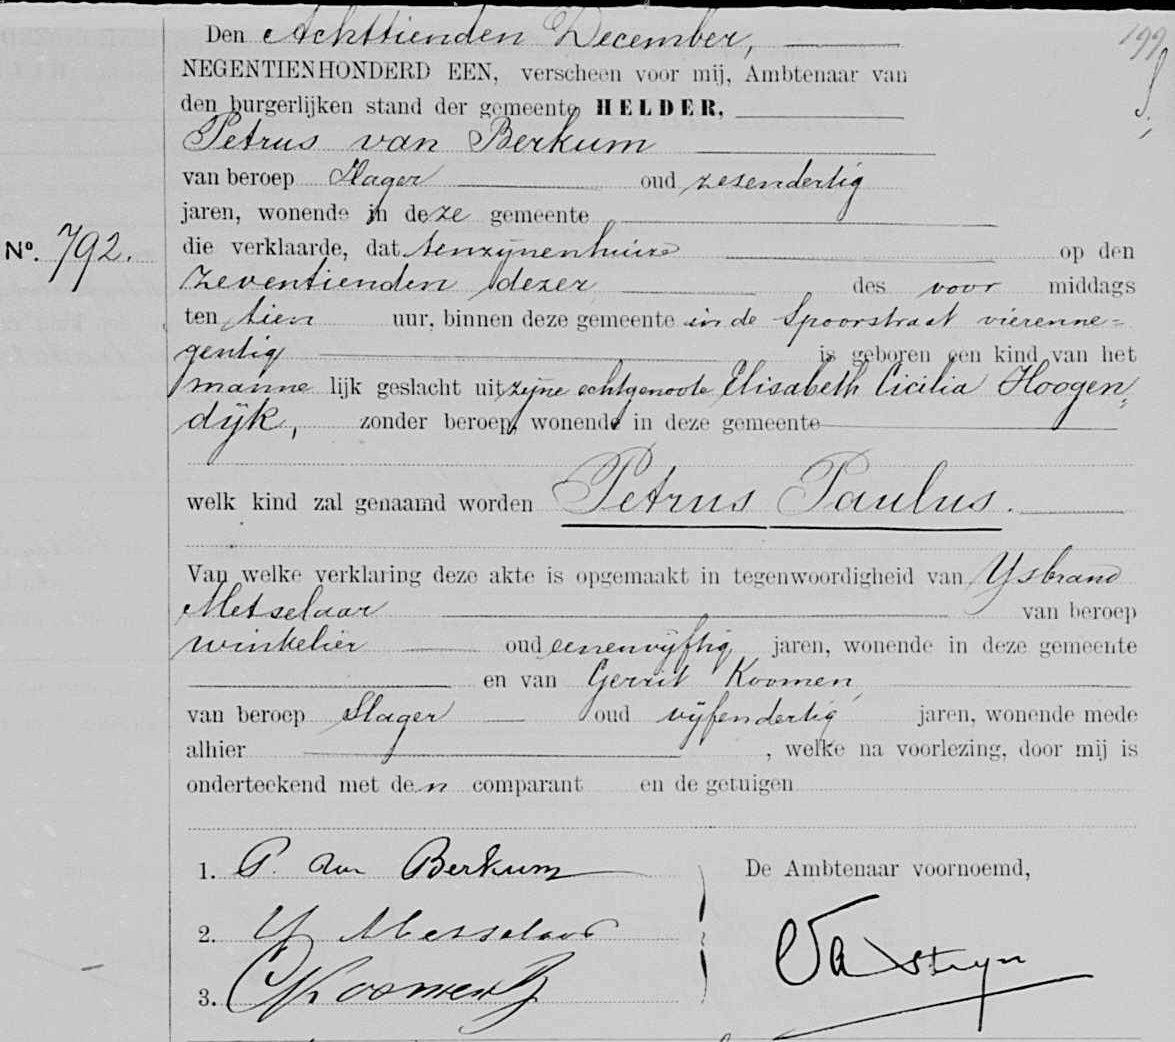 199
Den Achttienden December,
NEGENTIENHONDERD EEN, verscheen voor mij, Ambtenaar van
den burgerlijken stand der gemeente HELDER,
Petrus van Berkum
van beroep Slager oud zesendertig
jaren, wonende in deze gemeente
No. 792.
die verklaarde, dat tenzijnenhuize op den
zeventienden dezer des voor middags
ten tien uur, binnen deze gemeente in de Spoorstraat vierenne-
gentig is geboren een kind van het
manne lijk geslacht uit zijne echtgenoote Elisabeth Cicilia Hoogen,
dijk, zonder beroep, wonende in deze gemeente
welk kind zal genaamd worden Petrus Paulus.
Van welke verklaring deze akte is opgemaakt in tegenwoordigheid van Ysbrand
Metselaar van beroep
winkelier oud eenenvijftig jaren, wonende in deze gemeente
en van Gerrit Koomen,
van beroep Slager oud vijfendertig jaren, wonende mede
alhier , welke na voorlezing, door mij is
onderteekend met den comparant en de getuigen
1. P. van Berkum
De Ambtenaar voornoemd,
2. Y Metselaar
3. G Koomen